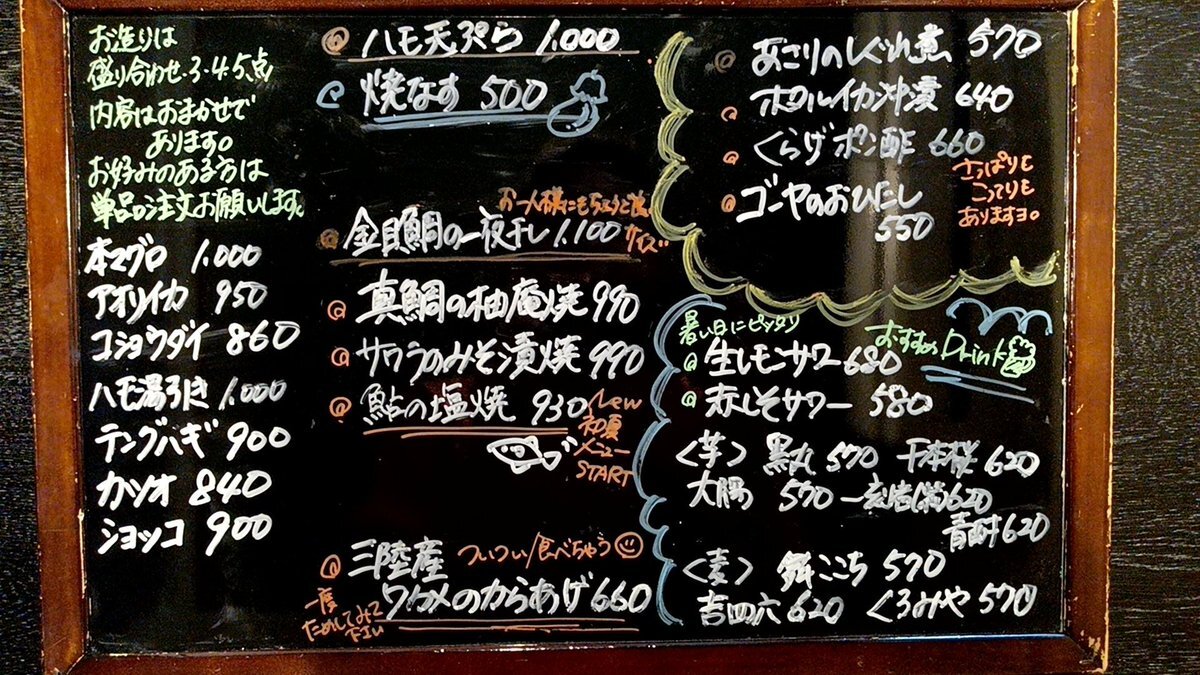 お造りは
盛り合わせ・3・4・5点
内容はおまかせで
あります。
お好みのある方は
単品の注文お願いします。
本マグロ 1.000
アオリイカ 950
コショウダイ 860
ハモ湯引き 1.000
テングハギ 900
カツオ 840
ショッコ 900
ハモ天ぷら 1.000
焼なす 500
お一人様にもちょうど良い
サイズ
金目鯛の一夜干し 1.100
真鯛の柚庵焼 990
サワラのみそ漬焼 990
鮎の塩焼 930
New
初夏
メニュー
START
三陸産
ついつい食べちゃう
ワカメのからあげ 660
一度
ためしてみて
下さい
あさりのしぐれ煮 570
ホタルイカ沖漬 640
くらげポン酢 660
ゴーヤのおひたし
550
さっぱりも
こってりも
ありますヨ。
暑い日にピッタリ
おすすめ Drink
生レモンサワー 680
赤しそサワー 580
<芋> 黒丸 570 千本桜 620
大隅 570 一刻者(紫) 620
青酎 620
<麦> 舞ここち 570
吉四六 620 くろみや 570